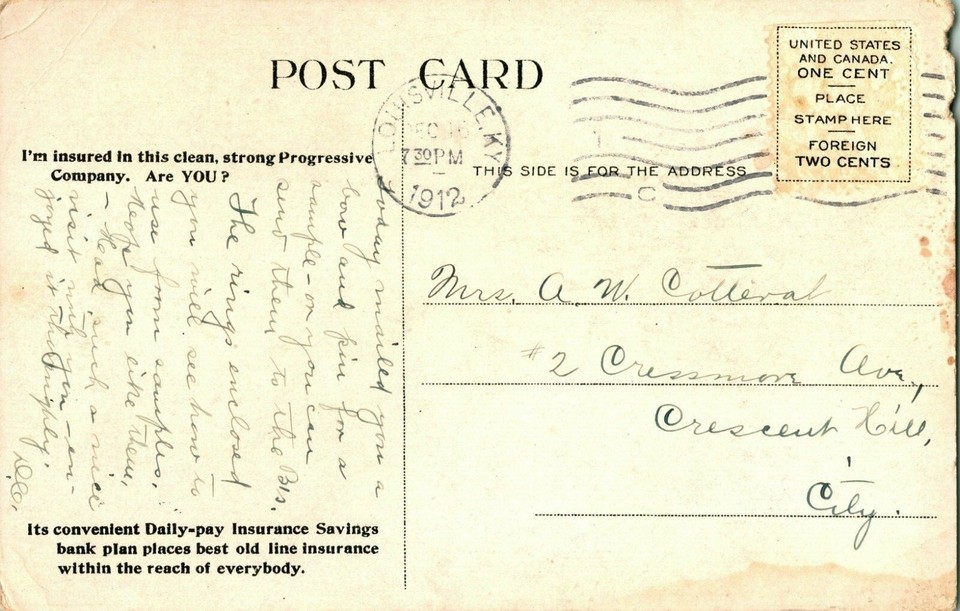 POST CARD
LOUISVILLE, KY.
DEC 16
7 30 PM
1912
UNITED STATES
AND CANADA.
ONE CENT
PLACE
STAMP HERE
FOREIGN
TWO CENTS
THIS SIDE IS FOR THE ADDRESS
C
I'm insured in this clean, strong Progressive
Company. Are YOU?
Today mailed you a
bow and pin for a
sample - or you can
send them to the
The rings enclosed
you will see how to
use from samples.
Hope you like them,
- Had such a nice
visit with you - en-
joyed it thoroughly.
Its convenient Daily-pay Insurance Savings
bank plan places best old line insurance
within the reach of everybody.
Mrs. A. W. Cotteral
#2 Cressmore Ave.,
Crescent Hill,
City.